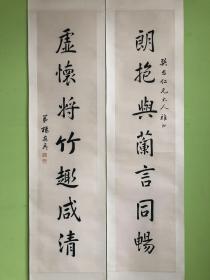 朗抱與蘭言同暢
虛懷將竹趣咸清